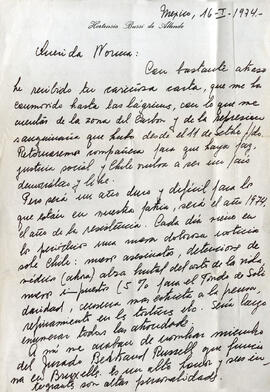 Mexico, 16-I-1974.-
Hortensia Bussi de Allende
Querida Norma:
Con bastante atraso
he recibido tu cariñosa carta, que me ha
conmovido hasta las lágrimas, con lo que me
cuentas de la zona del Carbón y de la represión
sanguinaria que hubo desde el 11 de Setbre. pdo.
Retornaremos compañera para que haya paz,
justicia social y Chile vuelva a ser un país
democrático y libre.
Pero será un año duro y difícil para los
que están en nuestra patria, será el año 1974
el año de la resistencia. Cada día viene en
los periódicos una nueva dolorosa noticia
sobre Chile: nuevos asesinatos, detenciones de
médicos (ahora) alza brutal del costo de la vida,
nuevos impuestos (5% para el Fondo de Soli
daridad, censura más estricta a la prensa,
refinamiento en las torturas etc. Sería largo
enumerar todas las atrocidades.
A mí me acaban de nombrar miembro
del jurado Bertrand Russell que funcio
na en Bruxells. Es un alto honor y sus in
tegrantes son altas personalidades.